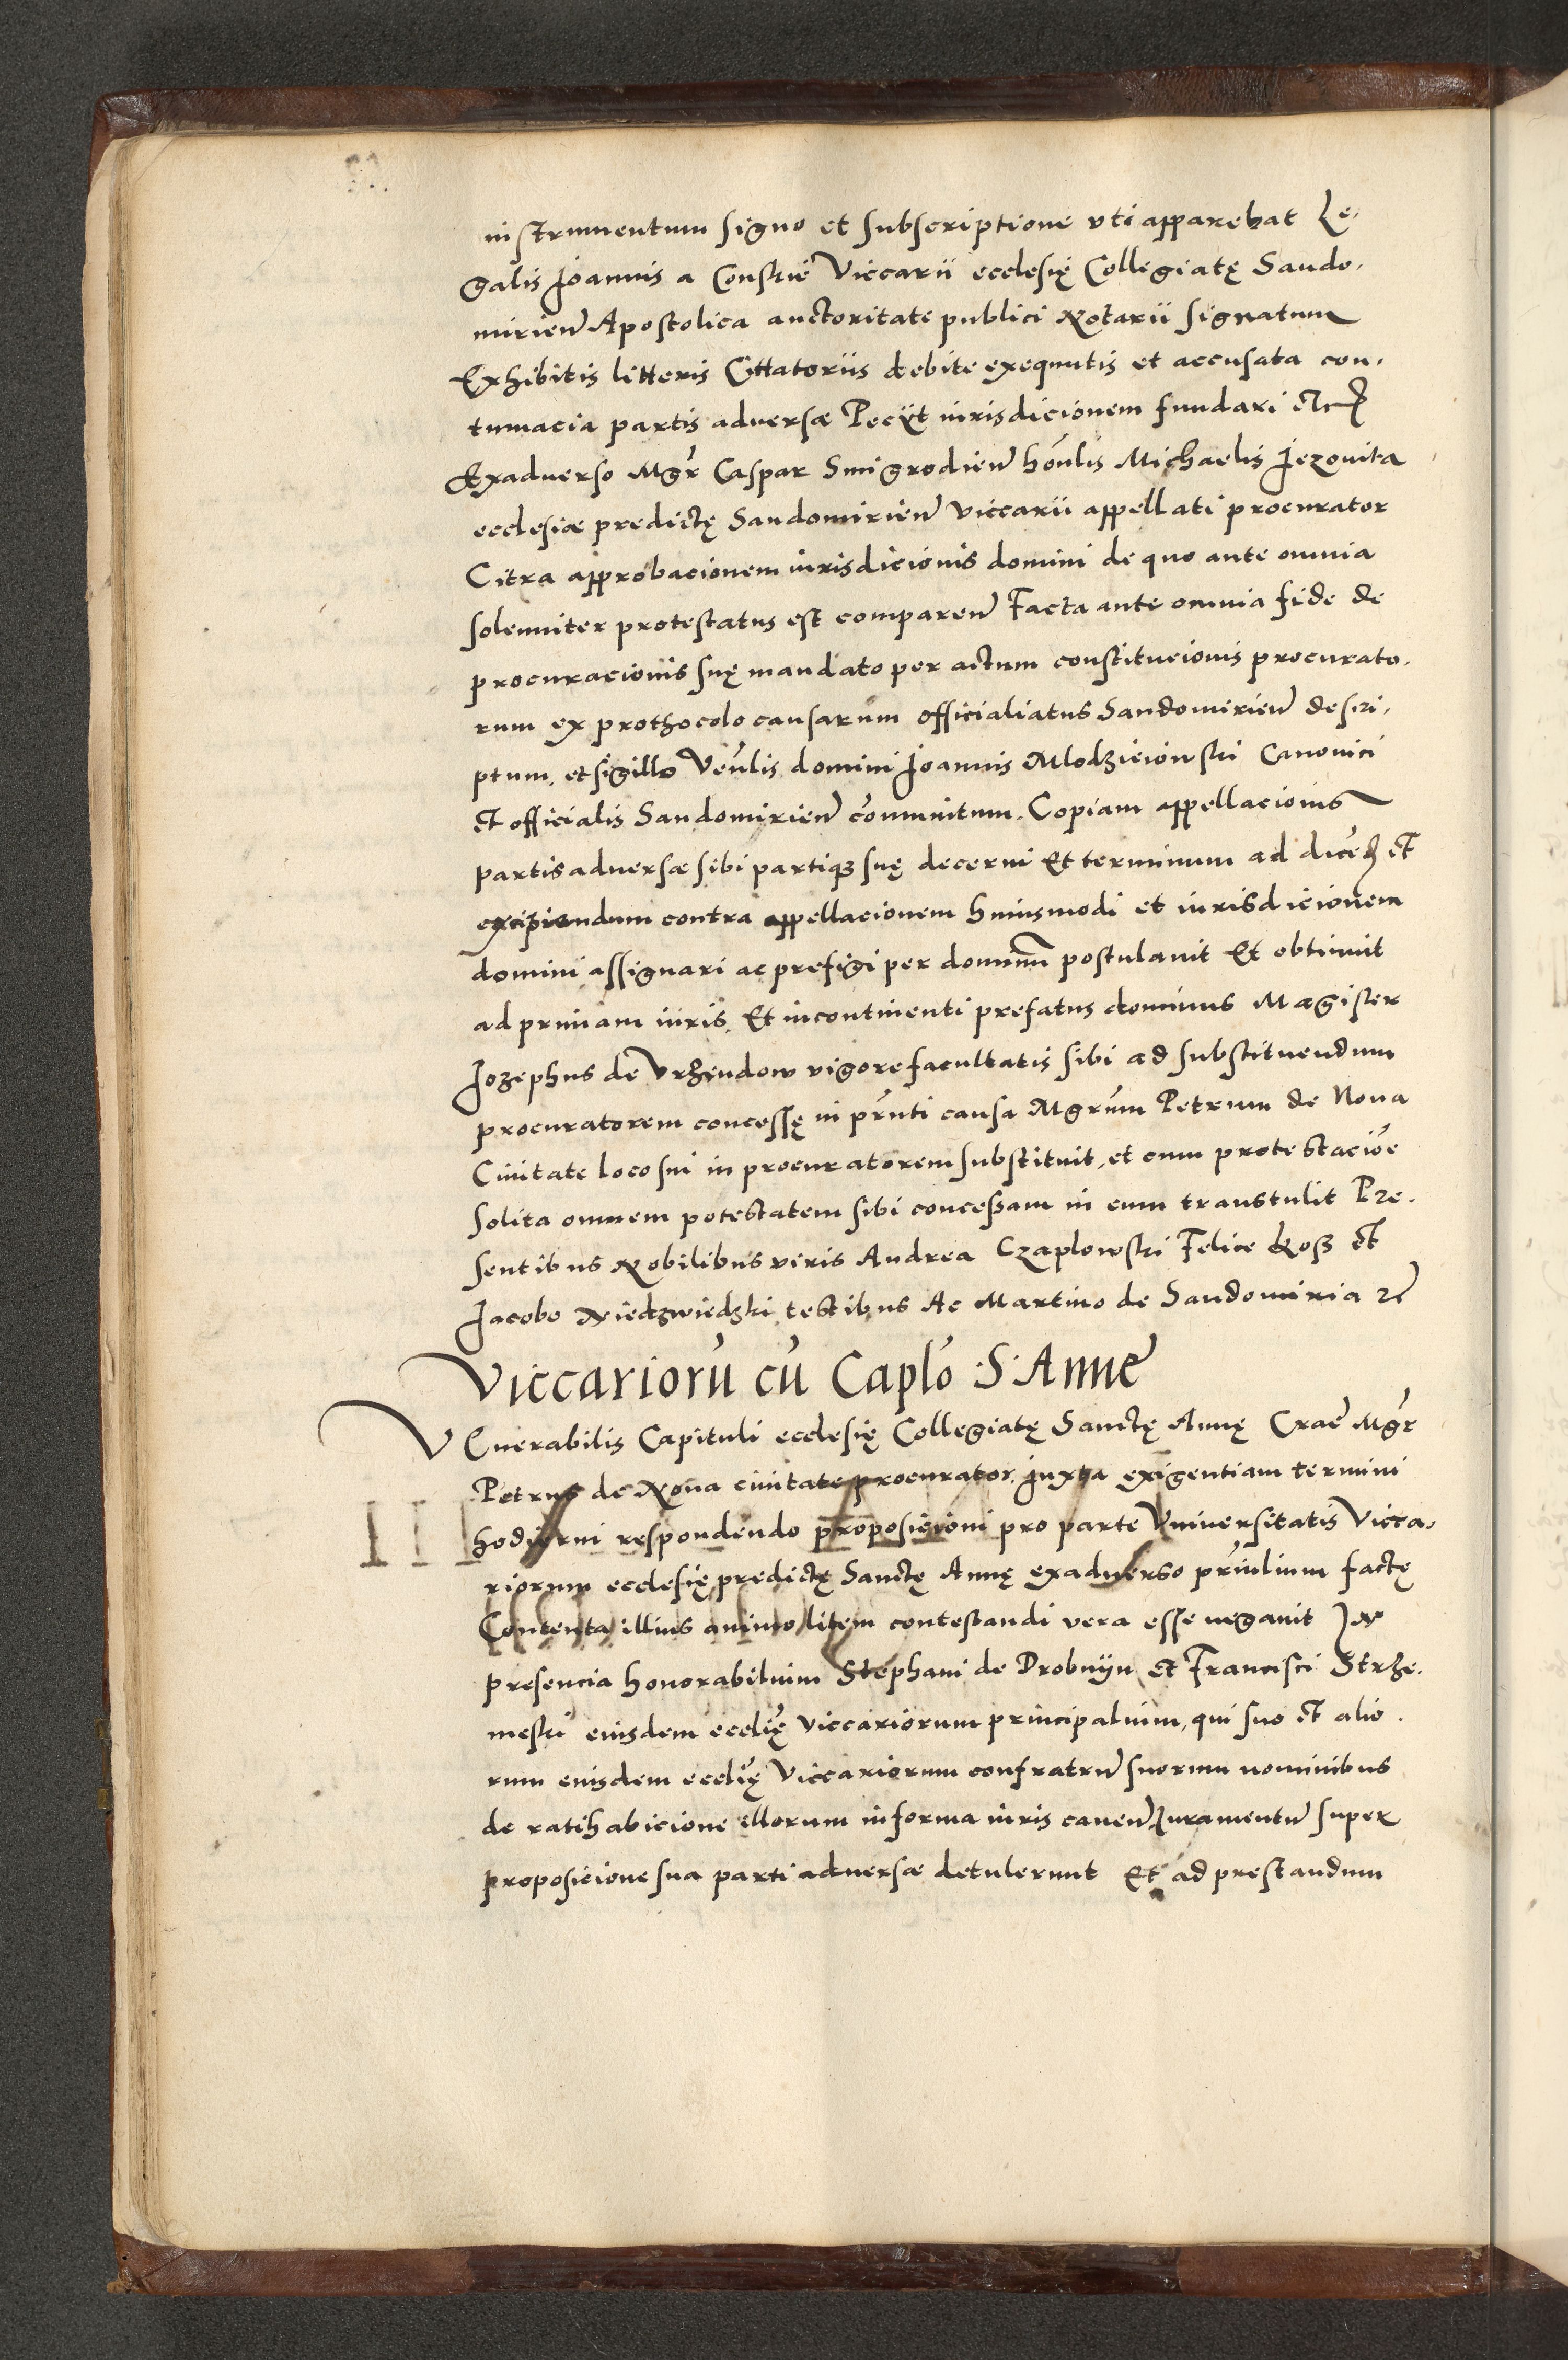 instrumentum signo et subscriptione vti apparebat Le-
galis Joannis a Conskie Viccarii ecclesię Collegiatę Sando-
mirien Apostolica auctoritate publici Notarii signatum
Exhibitis litteris Cittatoriis debite exequutis et accusata con-
tumacia partis adversæ Peciit iurisdicionem fundari etc
Exadverso Mgr Caspar Smigrodien honlis Michaelis Jezovita
ecclesiæ predictę Sandomirien viccarii appellati procurator
Citra approbacionem iurisdicionis domini de quo ante omnia
solenniter protestatus est comparen Facta ante omnia fide de
procuracionis suę mandato per actum constitucionis procurato-
rum ex prothocolo causarum officialiatus Sandomirien descri-
ptum, et sigillo Venlis domini Joannis Mlodzieiowski Canonici
et officialis Sandomirien communitum. Copiam appellacionis
partis adversæ sibi partiqz suę decerni Et terminum ad dicen et
excipiendum contra appellacionem huiusmodi et iurisdicionem
domini assignari ac prefigi per dominum postulavit Et obtinuit
ad primam iuris. Et incontinenti prefatus dominus Magister
Jozephus de Vrzendow vigore facultatis sibi ad substituendum
procuratorem concessę in prnti causa Mgrum Petrum de Nova
Civitate loco sui in procuratorem substituit, et cum protestacioe
solita omnem potestatem sibi concessam in eum transtulit Pre-
sentibus Nobilibus viris Andrea Czaplowski Felice Koß et
Jacobo Niedzwiedzki testibus Ac Martino de Sandomiria etc
Viccarioru cu Caplo S. Anne
VEnerabilis Capituli ecclesię Collegiatę Sanctę Annę Crae Mgr
Petrus de Nova civitate procurator, juxta exigentiam termini
hodierni respondendo proposicioni pro parte Vniversitatis Vicca-
riorum ecclesię predictę Sanctę Annę exadverso prīulium factę
Contenta illius animo litem contestandi vera esse negavit In
presencia honorabilium Stephani de Drobnyn et Francisci Strze-
meski eiusdem ecclię viccariorum principalium, qui suo et alio-
rum eiusdem ecclię Viccariorum confratrum suorum nominibus
de ratihabicione illorum in forma iuris caven Iuramentum super
proposicione sua parti adversæ detulerunt Et ad prestandum